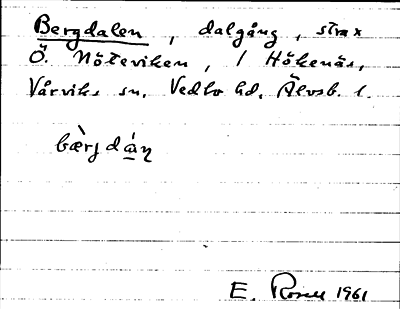 Bergdalen, dalgång, strax
Ö. Nöteviken, / Hökenäs,
Vårviks sn. Vedbo hd. Älvsb. l.
bærgdán
E. Rosell 1961